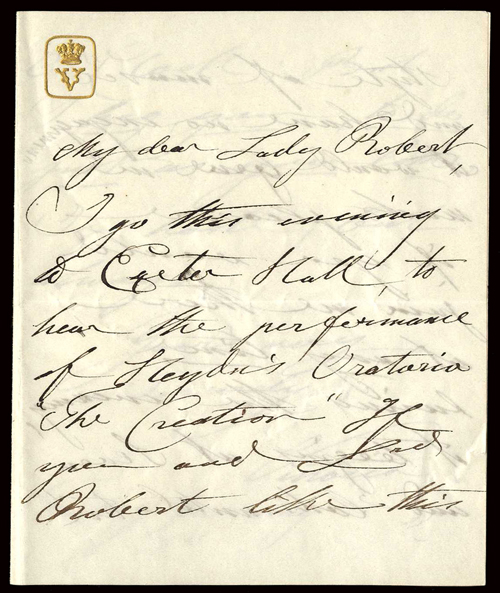 V
My dear Lady Robert,
I go this evening
to Exeter Hall, to
hear the performance
of Haydn's Oratorio
"The Creation" If
you and Lord
Robert like this